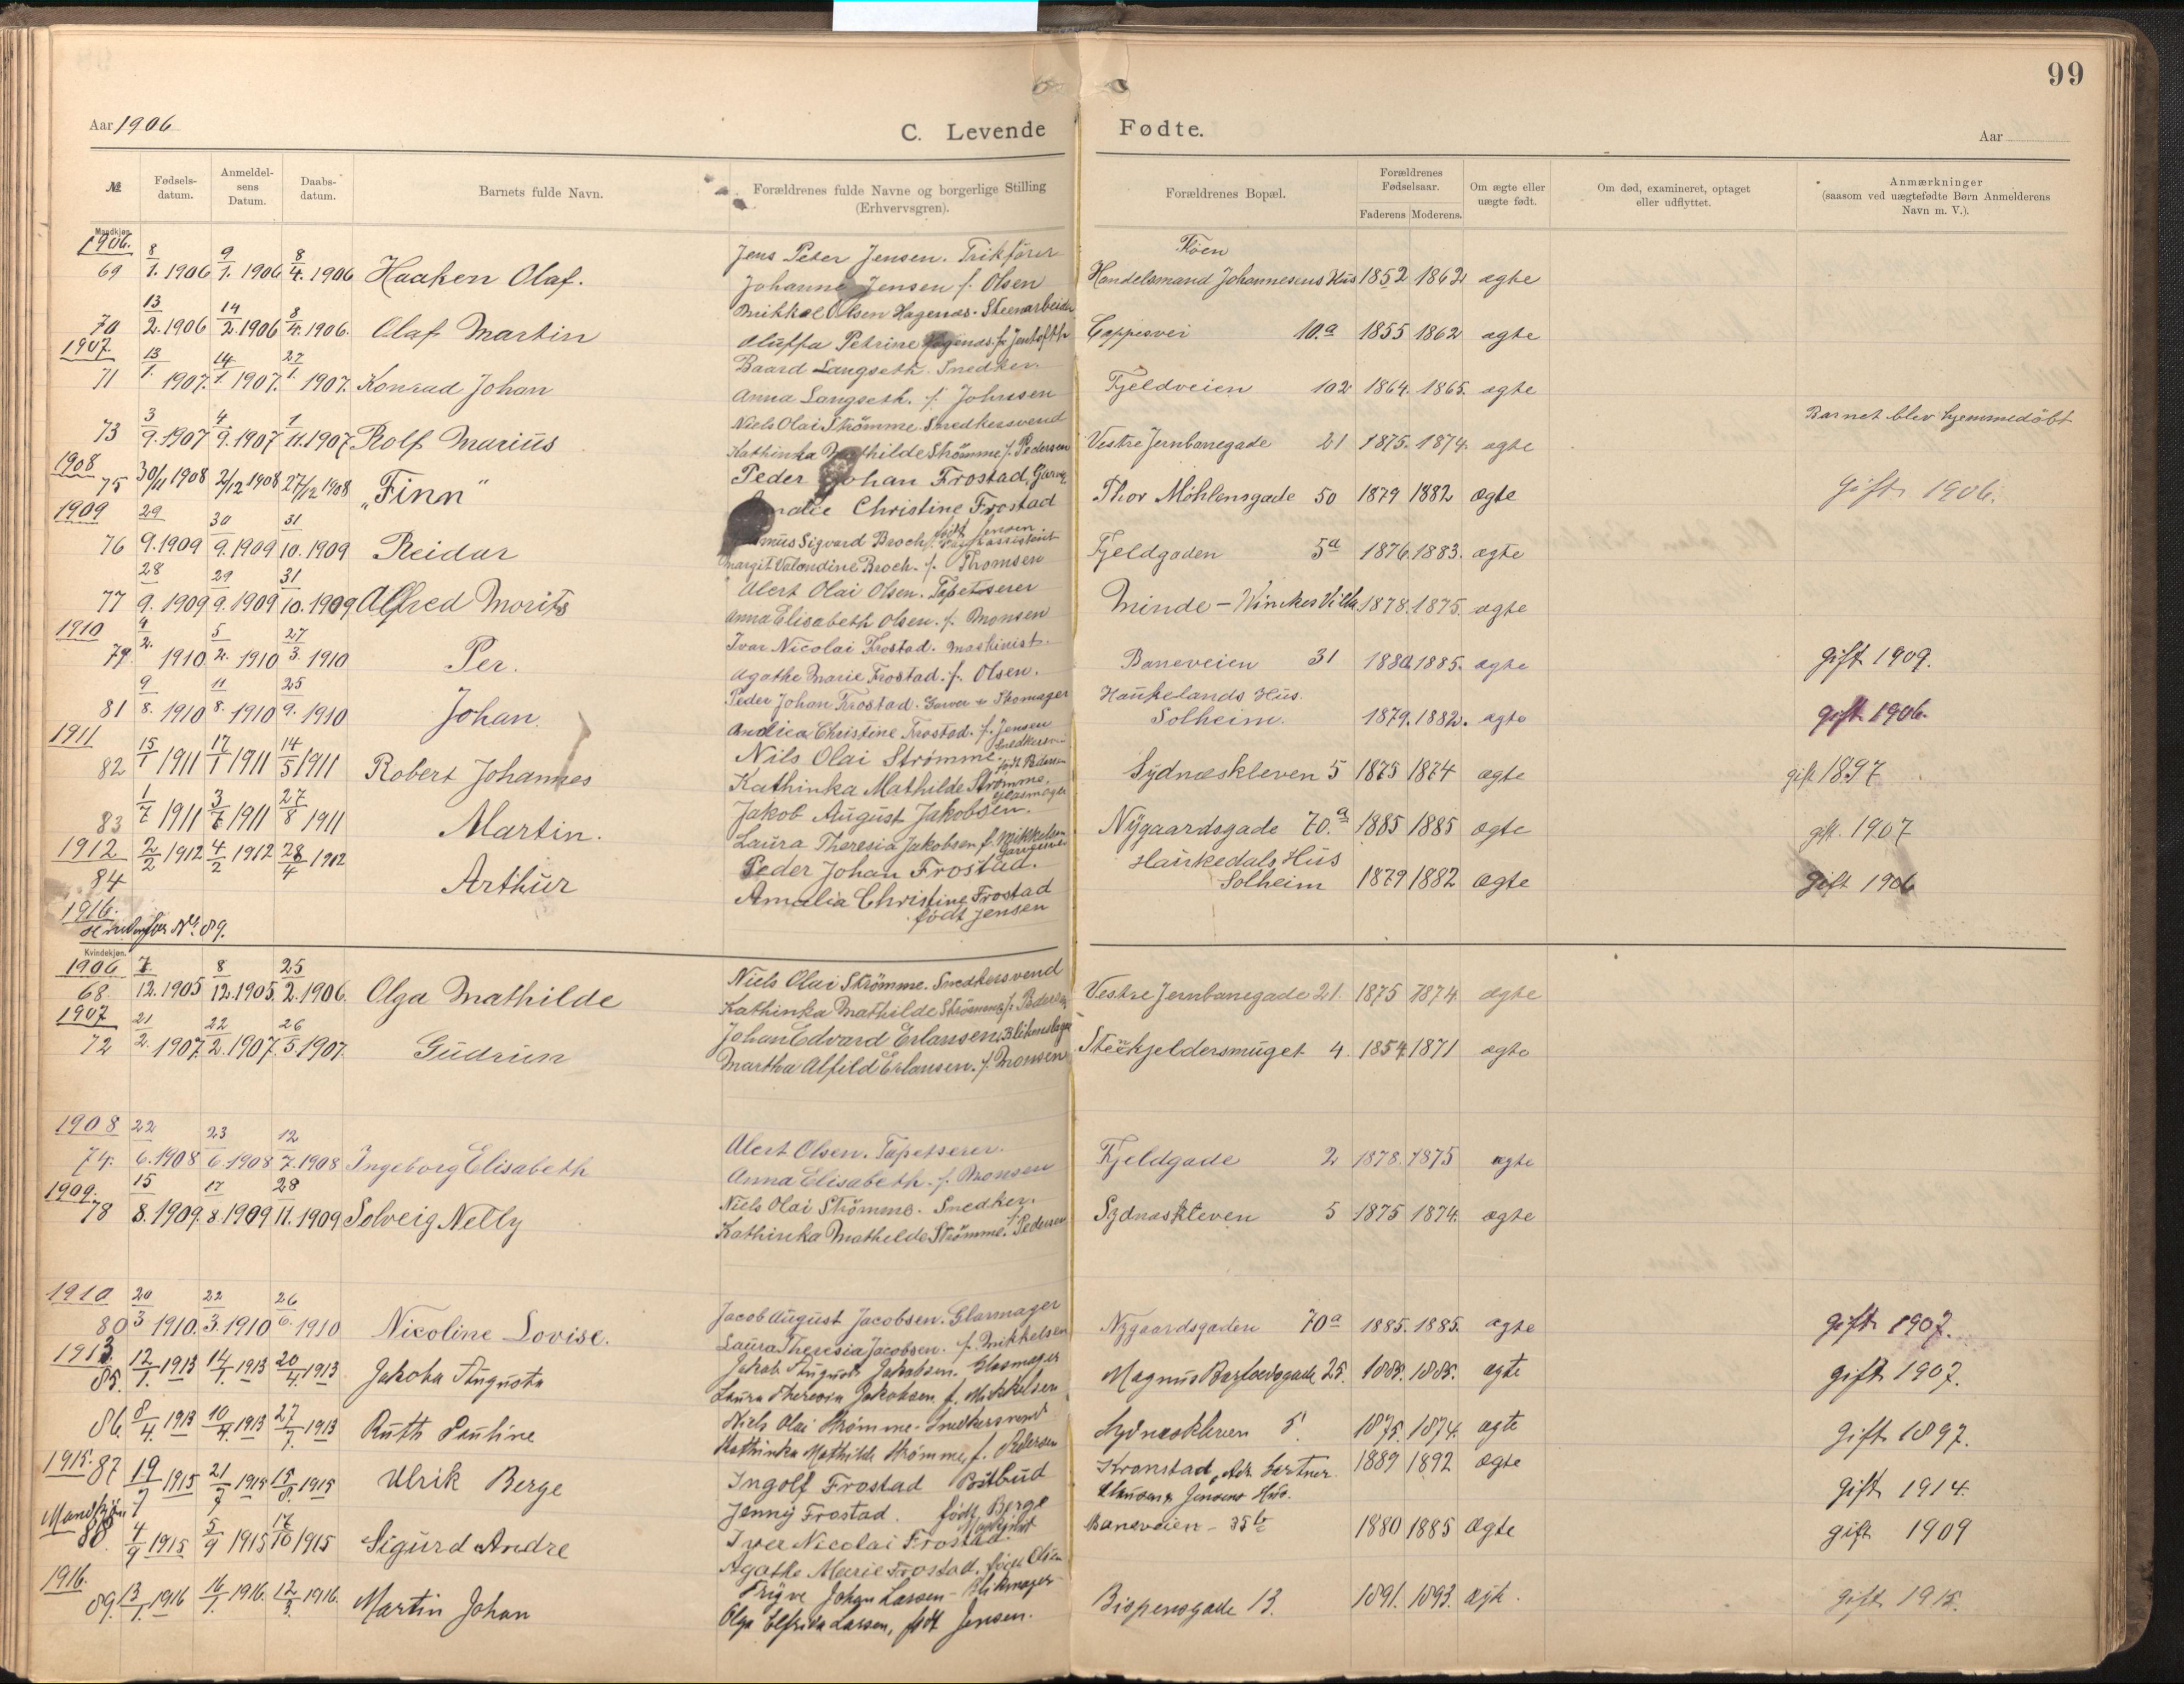 99
Aar 1906
C. Levende Fødte.
Aar
№
Fødselsdatum.
Anmeldelsens Datum.
Daabsdatum.
Barnets fulde Navn.
Forældrenes fulde Navne og borgerlige Stilling (Erhvervsgren).
Forældrenes Bopæl.
Forældrenes Fødselsaar.
Faderens Moderens.
Om ægte eller uægte født.
Om død, examineret, optaget eller udflyttet.
Anmærkninger (saasom ved uægtefødte Børn Anmelderens Navn m. V.).
Mandkjøn.
1906.
69 8/1. 1906 9/1. 1906 8/4. 1906 Haaken Olaf. Jens Peter Jensen. Fløen
Johanne Jensen f. Olsen Handelsmand Johannesens Hus 1852 1862 ægte
70 13/2. 1906 14/2. 1906 8/4. 1906. Olaf Martin Mikkel Olsen Hagenæs. Steenarbeider
Oluffa Petrine f. Jentofth 10.a 1855 1862 ægte
1907.
71 13/1. 1907. 14/1. 1907. 27/1. 1907. Konrad Johan Baard Langseth. Snedker
Anna Langseth. f. Johnsen Fjeldveien 102 1864. 1865. ægte
73 3/9. 1907 4/9. 1907 1/11. 1907 Rolf Marius Niels Olai Strømme. Snedkersvend
Kathinka Mathilde Strømme f. Pedersen Vestre Jernbanegade 21 1875. 1874. ægte Barnet blev hjemmedøbt
1908
75 30/11 1908 2/12 1908 27/12 1908 „Finn" Peder Johan Frostad, Garver
Christine Frostad født Jensen. Thor Möhlensgade 50 1879 1882 ægte gift 1906.
1909
76 29/9. 1909 30/9. 1909 31/10. 1909 Reidar Sigvard Broch.
Margit Valondine Broch. f. Thomsen Fjeldgaden 5a 1876. 1883. ægte
77 28/9. 1909 29/9. 1909 31/10. 1909 Alfred Morits Alert Olai Olsen. Tapetserer
Anna Elisabeth Olsen. f. Monsen Minde - Winckes Villa 1878. 1875. ægte
1910
79. 4/2. 1910 5/2. 1910 27/3. 1910 Per. Ivar Nicolai Frostad. Maskinist.
Agathe Marie Frostad. f. Olsen. Baneveien 31 1880. 1885. ægte gift 1909.
81 9/8. 1910 11/8. 1910 25/9. 1910 Johan. Peder Johan Frostad. Garver & Skomager
Christine Frostad. f. Jensen Haukelands Hus. Solheim. 1879. 1882. ægte gift 1906.
1911
82 15/1 1911 17/1 1911 14/5 1911 Robert Johannes Nils Olai Strømme. Snedkersvend
Kathinka Mathilde Strømme. født Pedersen Sydnæskleven 5 1875 1874 ægte gift 1897
83 1/7 1911 3/7 1911 27/8 1911 Martin. Jakob August Jakobsen. Glasmager
Laura Theresia Jakobsen f. Mikkelsen Nygaardsgade 70.a 1885 1885 ægte gift. 1907
1912
84 2/2 1912 4/2 1912 28/4 1912 Arthur Peder Johan Frostad.
Amalia Christine Frostad født Jensen Haukedals Hus Solheim 1879 1882 ægte gift 1906
1916.
No. 89.
Kvindekjøn.
1906
68. 7/12. 1905 8/12. 1905. 25/2. 1906. Olga Mathilde Niels Olai Strømme. Snedkersvend
Kathinka Mathilde Strømme f. Pedersen Vestre Jernbanegade 21. 1875 1874 ægte
1907
72 21/2. 1907 22/2. 1907. 26/5. 1907 Gudrun Johan Edvard Erlansen.
Martha Alfild Erlansen. f. Monsen Steinkjeldersmuget 4. 1854 1871 ægte
1908
74. 22/6. 1908 23/6. 1908 12/7. 1908 Ingeborg Elisabeth Alert Olsen. Tapetserer.
Anna Elisabeth. f. Monsen Fjeldgade 2 1878. 1875 ægte
1909.
78 15/8. 1909. 17/8. 1909 28/11. 1909 Solveig Nelly Niels Olai Strømme. Snedker.
Kathinka Mathilde Strømme. f. Pedersen Sydnæskleven 5 1875 1874. ægte
1910
80 20/3 1910. 22/3. 1910 26/6. 1910 Nicoline Lovise. Jacob August Jacobsen. Glasmager
Laura Theresia Jacobsen. f. Mikkelsen Nygaardsgaden 70a 1885. 1885. ægte gift 1907.
1913
85. 12/1. 1913 14/1. 1913 20/4. 1913 Jakoba Augusta Jakob August Jakobsen. Glasmager
Laura Theresia Jakobsen f. Mikkelsen Magnus Barfodsgade 25. 1885. 1885. ægte gift 1907.
86. 8/4. 1913 10/4. 1913 27/7. 1913 Ruth Pauline Niels Olai Strømme - Snedkersvend
Kathinka Mathilde Strømme f. Pedersen Sydnæskleven 5. 1875. 1874. ægte gift 1897.
1915. 87 19/7 1915 21/7 1915 15/8. 1915 Ulrik Berge Ingolf Frostad Bilbud
Jenny Frostad. født Berge Kronstad, Gartner Jensens Hus. 1889 1892 ægte gift 1914.
Mandkjøn
88 4/9 1915 5/9 1915 17/10 1915 Sigurd Andre Iver Nicolai Frostad Maskinist
Agathe Marie Frostad. født Olsen Baneveien - 35b 1880 1885 ægte gift 1909
1916.
89. 13/1. 1916 16/1. 1916. 12/3. 1916. Martin Johan Trygve Johan Larsen - Blikmager
Olga Elfrida Larsen, født Jensen. Bispensgade 13. 1891. 1893. ægte. gift 1915.